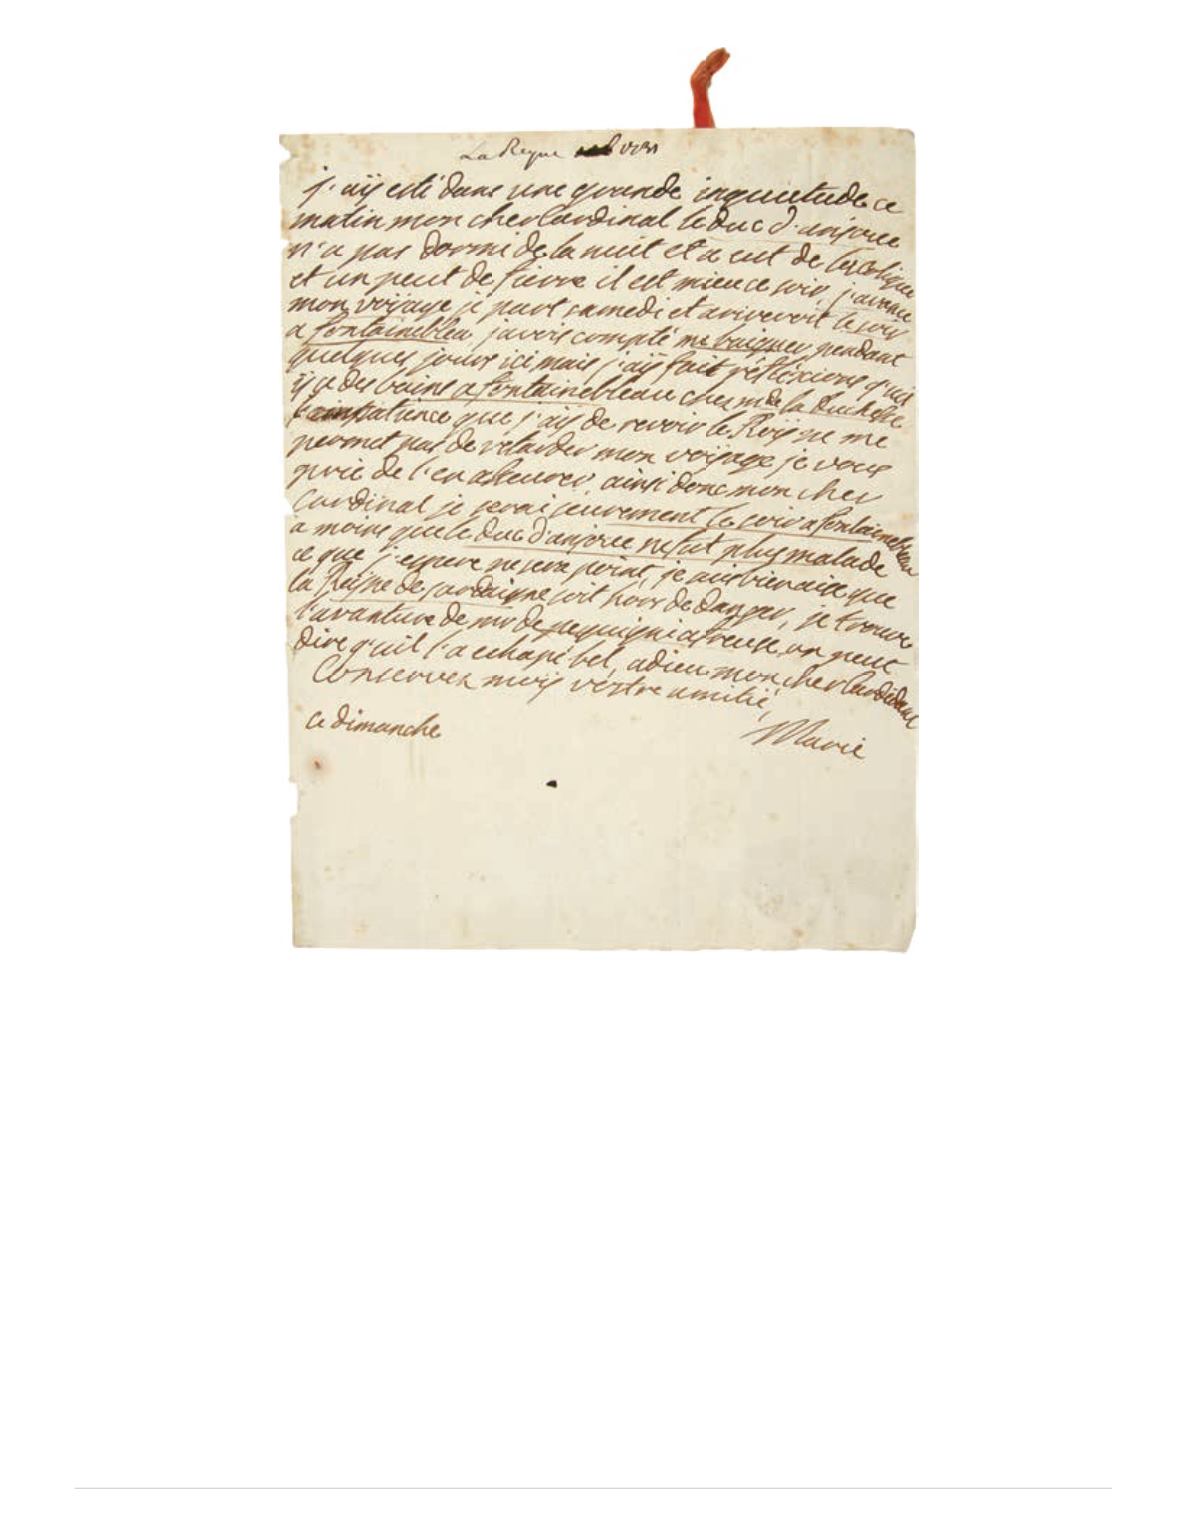 La Reyne
j'aÿ esté dans une grande inquietude ce
matin mon cher Cardinal le duc d'anjou
n'a pas dormi de la nuit et a eut de la Colique
et un peut de fievre il est mieu ce soir, j'avance
mon voÿage je part samedi et ariverait le soir
a fontainebleu javois compté me baigner pendant
quelques jours ici mais j'aÿ fait réfléxions q'uil
ÿ a des bains a fontainebleau ches mde la duchesse
l'impatience que j'aÿ de revoir le Roÿ ne me
permet pas de retarder mon voÿage je vous
prie de l'en asseurer ainsi donc mon cher
Cardinal je serai seurement le soir a fontainebleau
a moins que le duc d'anjou ne fut plus malade
ce que j'espere ne sera point, je suis bien aise que
la Reine de sardaigne soit hors de danger, je trouve
l'avanture de mr de pequigni afreuse, on peut
dire q'uil l'a echapé bel, adieu mon cher Cardinal
Conserves moÿ vostre amitié,
ce dimanche
Marie